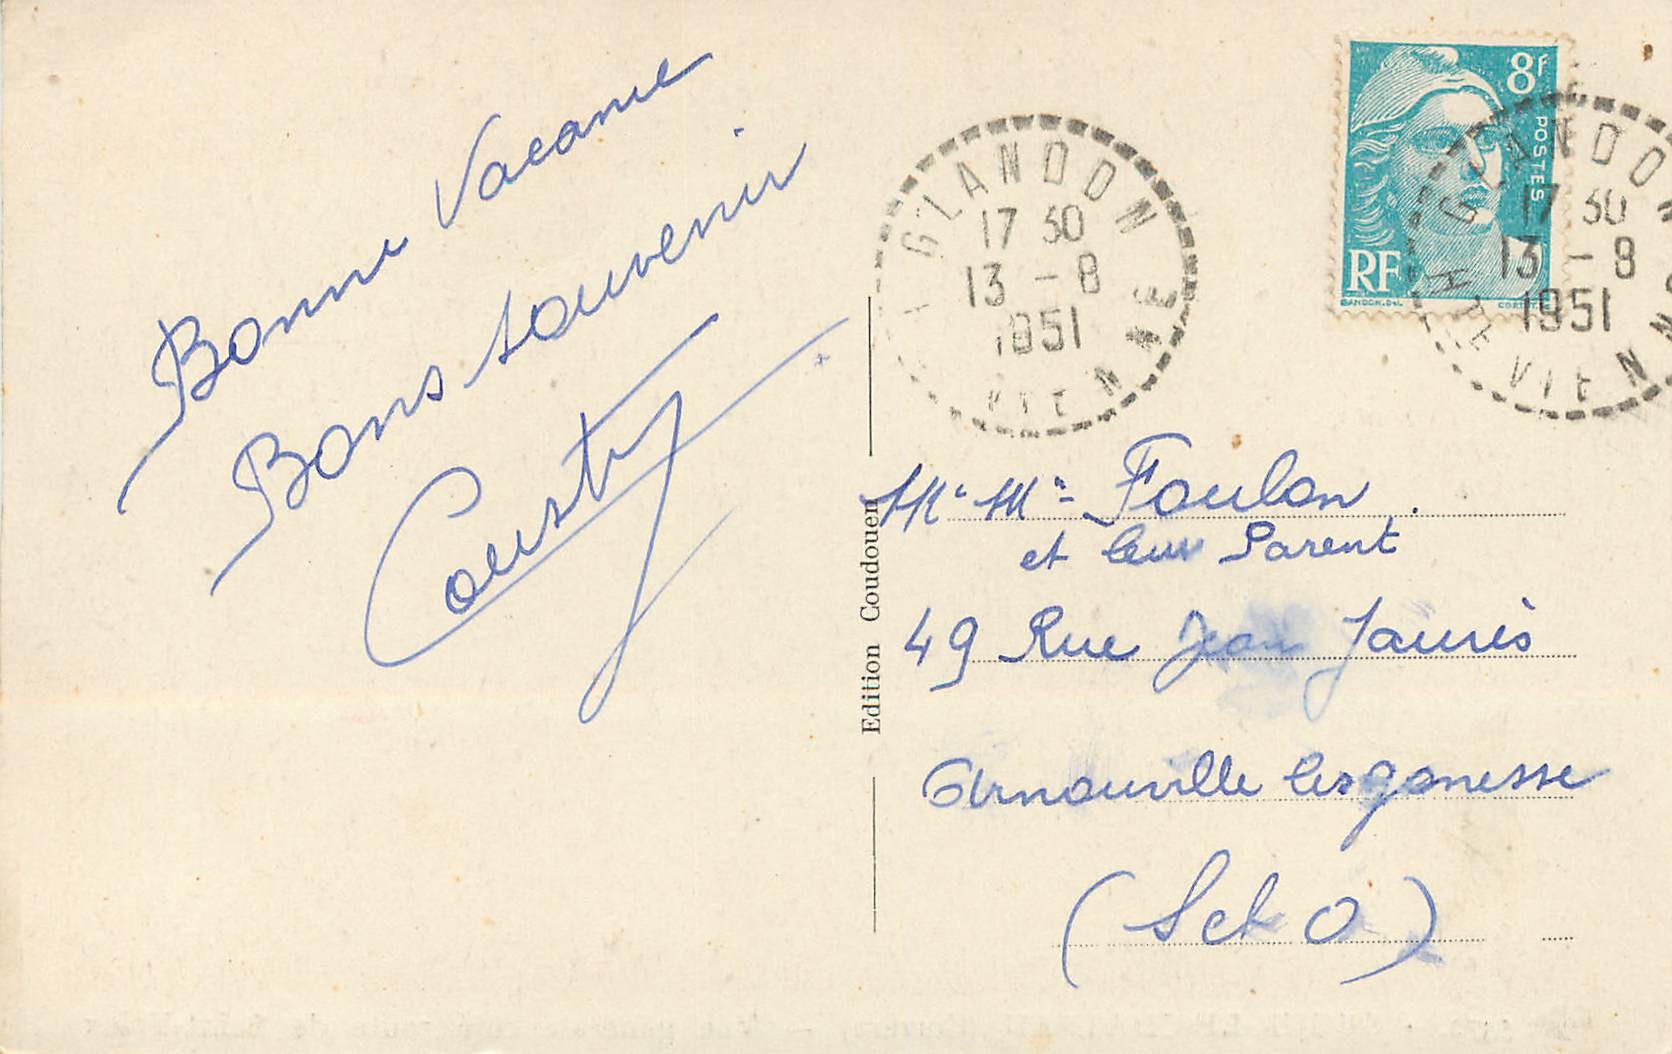 Bonne Vacane
Bons souvenir
Cousty
GLANDON
17 30
13 - 8
1951
Hte VIENNE
8F
POSTES
RF
GANDON. Del.
GLANDON
17 30
13 - 8
1951
VIENNE
Edition Coudouen
Mr Me = Foulon
et leur Parent
49 Rue Jean Jaurès
Arnouville les gonesse
(S et O)